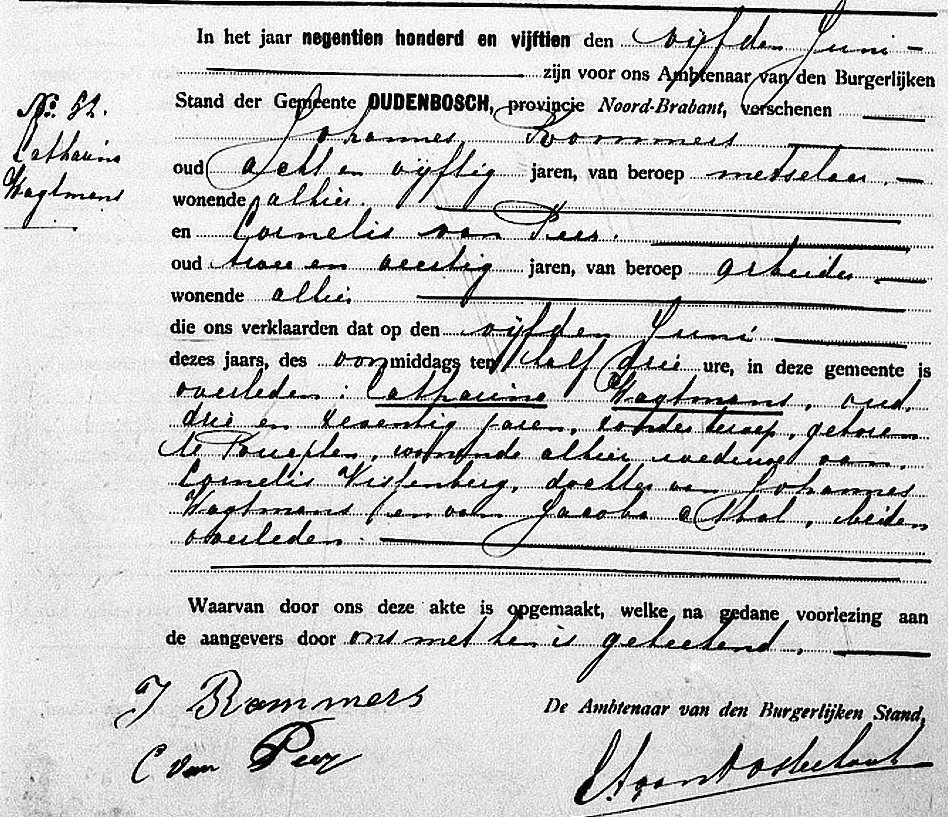 In het jaar negentien honderd en vijftien den vijfden Juni
zijn voor ons Ambtenaar van den Burgerlijken
No. 52.
Catharina
Wagtmans
Stand der Gemeente OUDENBOSCH, provincie Noord-Brabant, verschenen
Johannes Rommers
oud acht en vijftig jaren, van beroep metselaar
wonende alhier.
en Cornelis van Peer.
oud twee en veertig jaren, van beroep arbeider
wonende alhier
die ons verklaarden dat op den vijfden Juni
dezes jaars, des voormiddags ten half drie ure, in deze gemeente is
overleden: Catharina Wagtmans, oud
drie en zeventig jaren, zonder beroep, geboren
te wonende alhier weduwe van
Cornelis dochter van Johannes
Wagtmans en van Jacoba beiden
overleden.
Waarvan door ons deze akte is opgemaakt, welke na gedane voorlezing aan
de aangevers door ons met hen is geteekend.
J Rommers
De Ambtenaar van den Burgerlijken Stand,
C van Peer